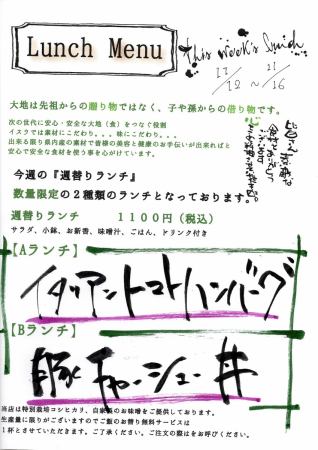 Lunch Menu
This week's Lunch
12/12 ~ 21/16
大地は先祖からの贈り物ではなく、子や孫からの借り物です。
次の世代に安心・安全な大地（食）をつなぐ役割
イスクでは素材にこだわり。。。味にこだわり。。。
出来る限り県内産の素材で皆様の美容と健康のお手伝いが出来ればと
安心で安全な食材を使う事を心がけています。
今週の『週替りランチ』
数量限定の２種類のランチとなっております。
週替りランチ　１１００円（税込）
サラダ、小鉢、お新香、味噌汁、ごはん、ドリンク付き
【Aランチ】
イタリアントマトハンバーグ
【Bランチ】
豚チャーシュー丼
当店は特別栽培コシヒカリ、自家製のお味噌をご提供しております。
生産量に限りがございますのでご飯のお替り無料サービスは
１杯とさせていただきます。ご了承ください。ご注文の際はをお呼びください。